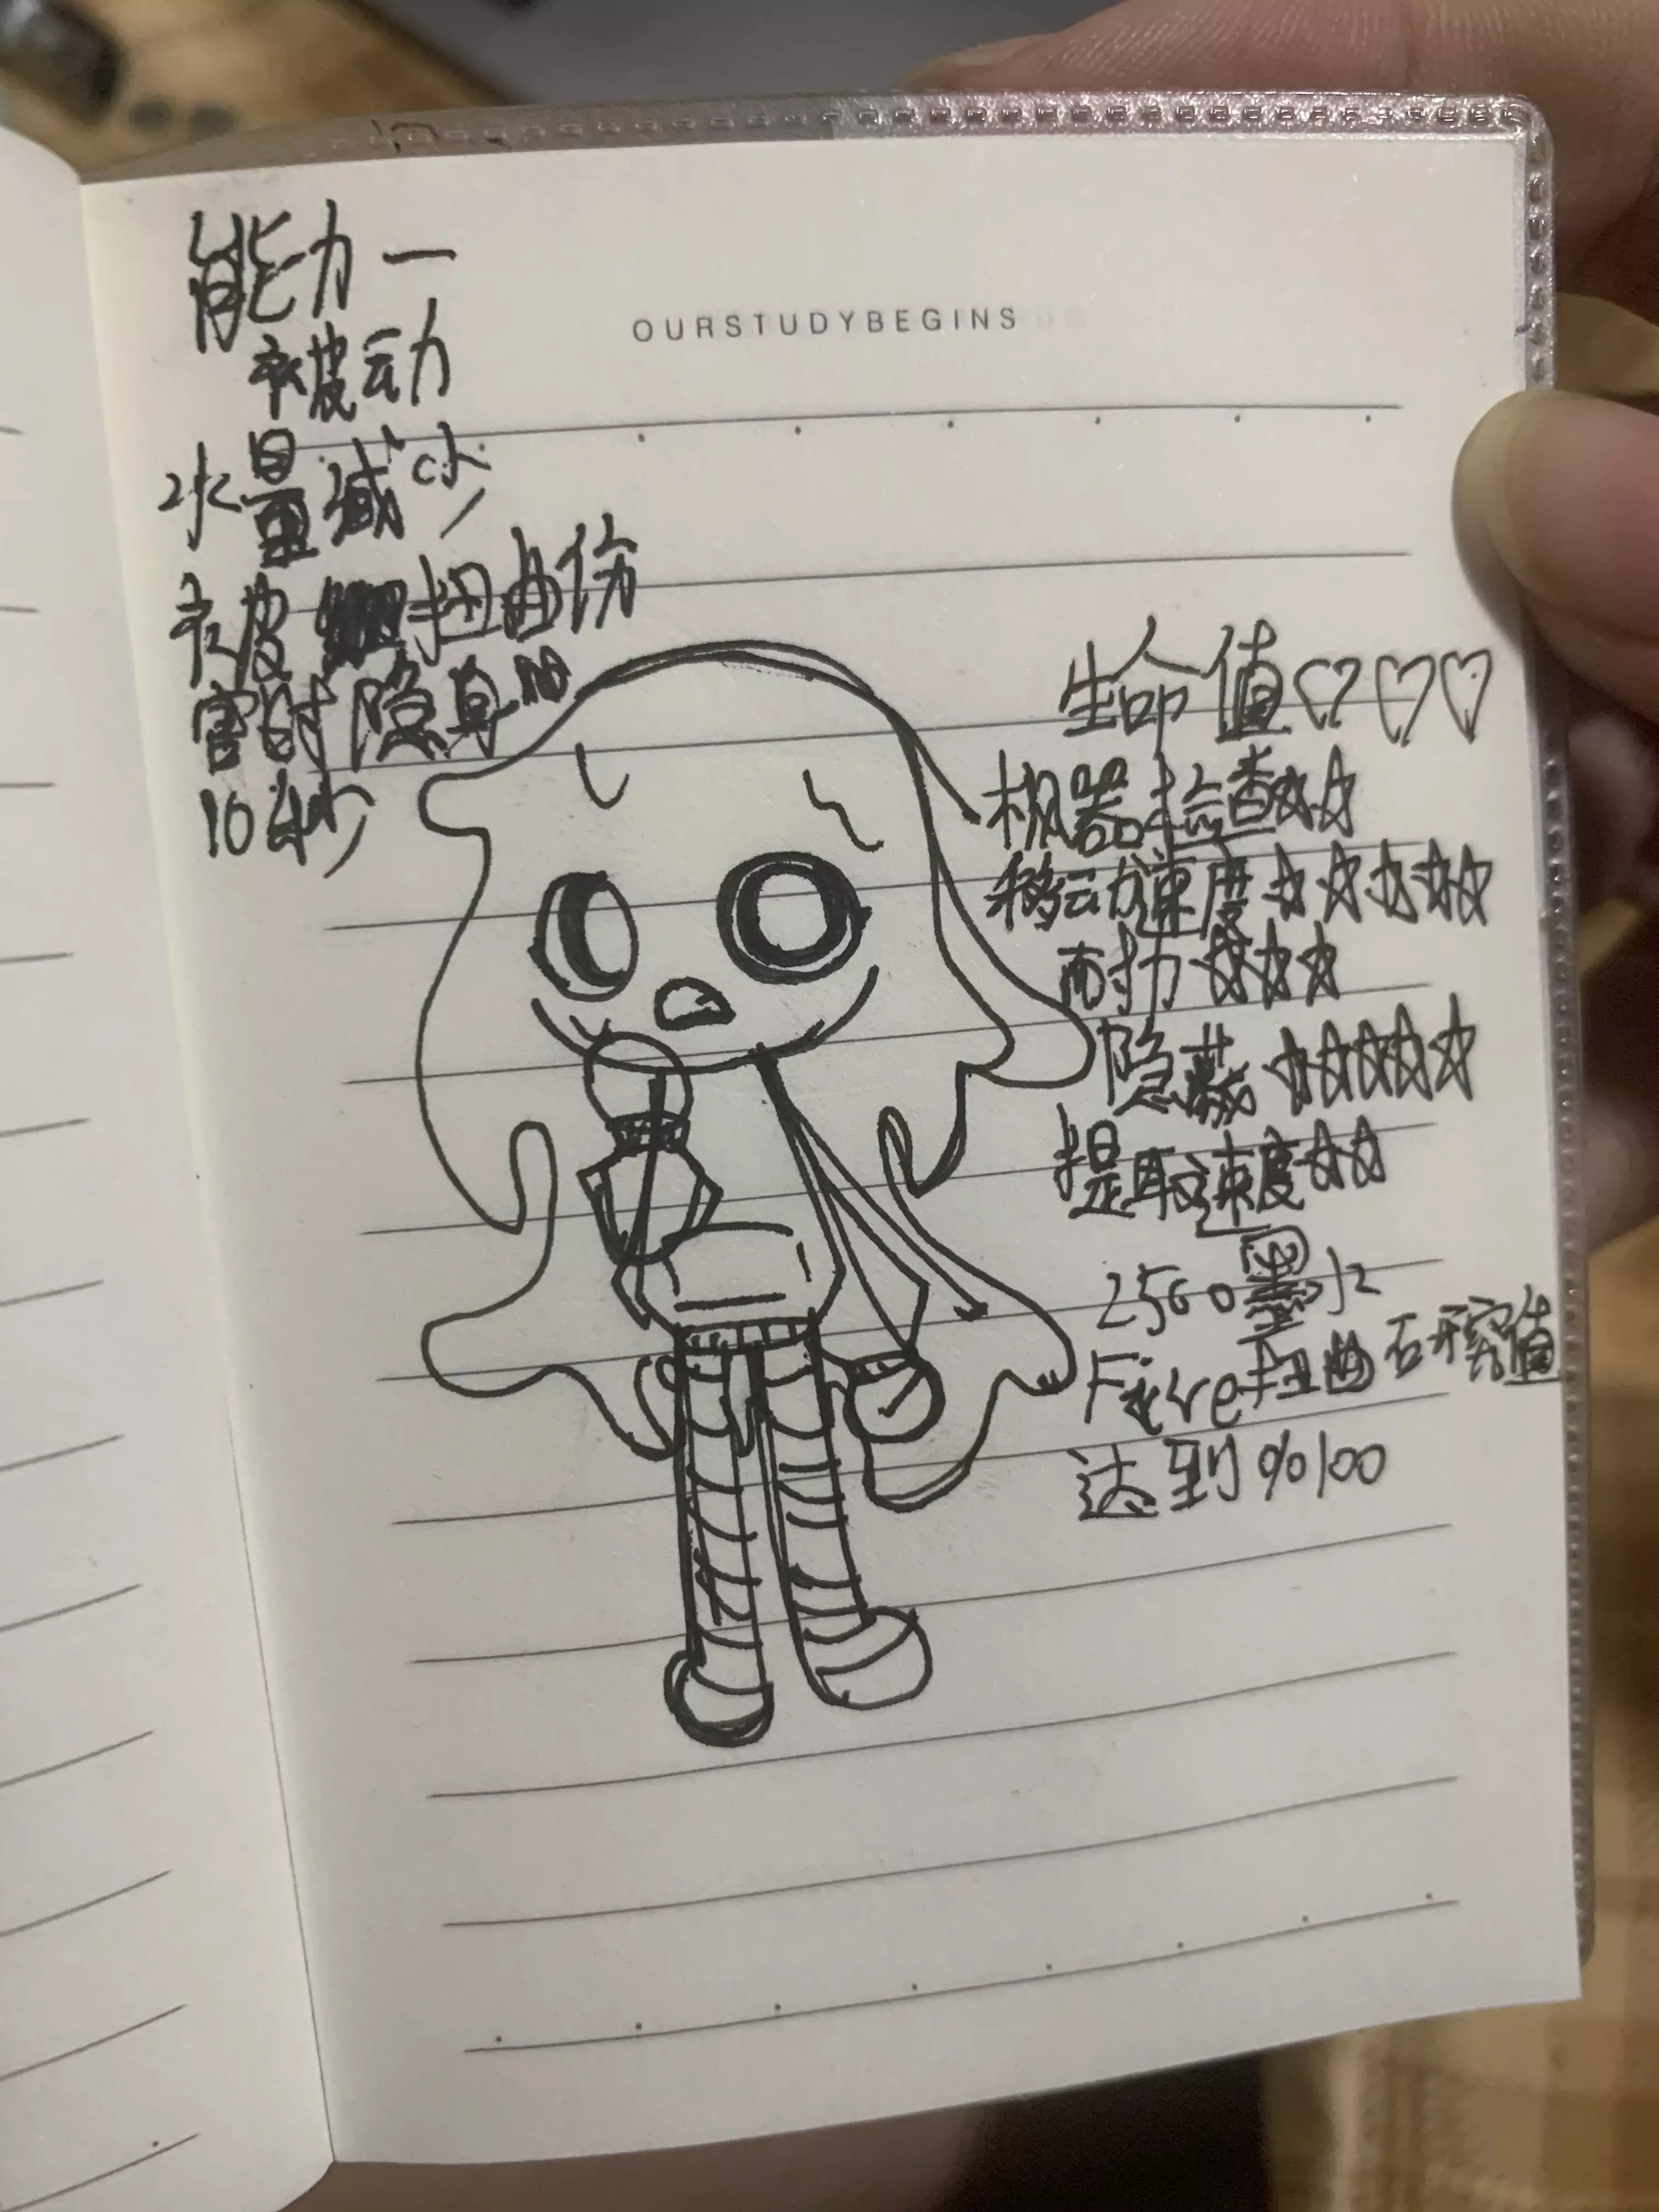 OURSTUDYBEGINS
能力一
被动
水量减少
被扭曲伤
害时隐身
10秒
生命值♡♡♡
机器检查☆☆
移动速度☆☆☆☆☆
耐力☆☆☆
隐蔽☆☆☆☆☆
提取速度☆☆
2500墨水
Five扭曲研究值
达到%100